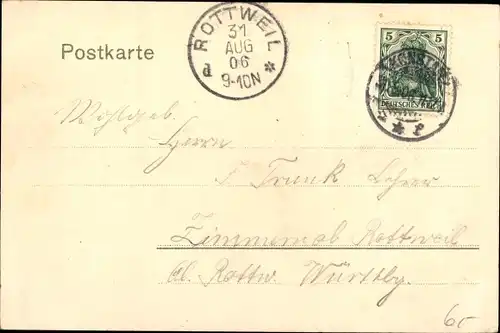 ROTTWEIL
31
AUG
06
9-10N
d
Postkarte
5 5
DEUTSCHES REICH
Wohlgeb.
Herrn
Frank Lehrer
Zimmern ob Rottweil
Württbg.
60